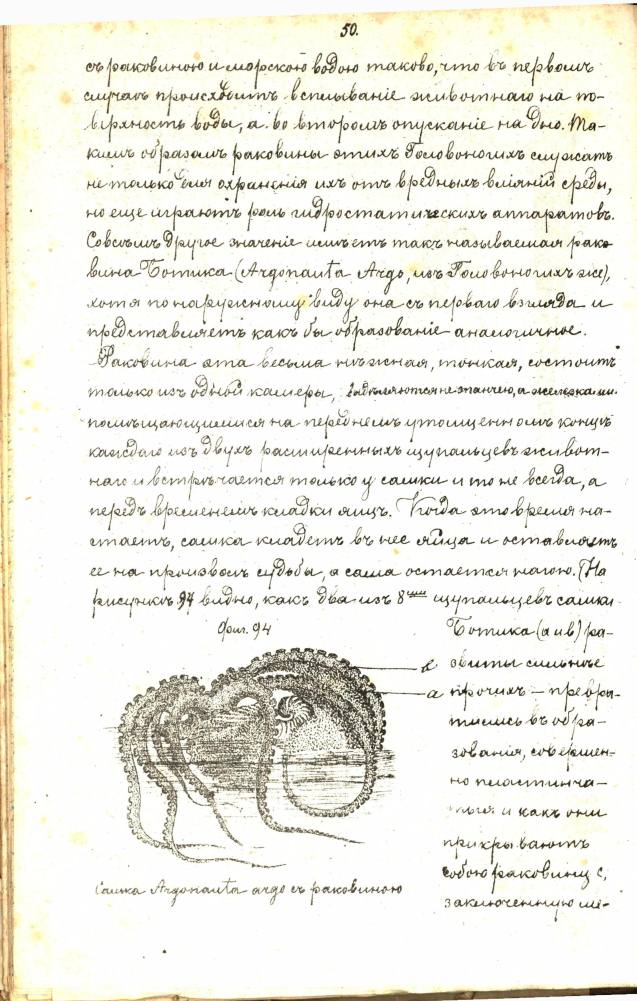 50.
съ раковиною и морскою водою таково, что въ первомъ
случаѣ происходитъ всплываніе животнаго на по-
верхность воды, а во второмъ опусканіе на дно. Та-
кимъ образомъ раковины этихъ Головоногихъ служатъ
не только для охраненія ихъ отъ вредныхъ вліяній среды,
но еще играютъ роль гидростатическихъ аппаратовъ.
Совсѣмъ другое значеніе имѣетъ такъ называемая рако-
вина Ботика (Argonauta Argo, изъ Головоногихъ же),
хотя по наружному виду она съ перваго взгляда и
представляетъ какъ бы образованіе аналогичное.
Раковина эта весьма нѣжная, тонкая, состоитъ
только изъ одной камеры, не а
помѣщающимися на переднемъ утолщенномъ концѣ
каждаго изъ двухъ расширенныхъ щупальцевъ живот-
наго и встрѣчается только у самки и то не всегда, а
передъ временемъ кладки яицъ. Когда это время на-
стаетъ, самка кладетъ въ нее яйца и оставляетъ
ее на произволъ судьбы, а сама остается нагою. (На
рисункѣ 94 видно, какъ два изъ 8ми щупальцевъ самки
Ботика (а и в) ра-
звиты сильнѣе
прочихъ — превра-
тились въ обра-
зованія, совершен-
но пластинча-
тыя и какъ они
прикрываютъ
собою раковину с,
заключенную ме-
Фиг. 94
в
а
Самка Argonauta argo съ раковиною